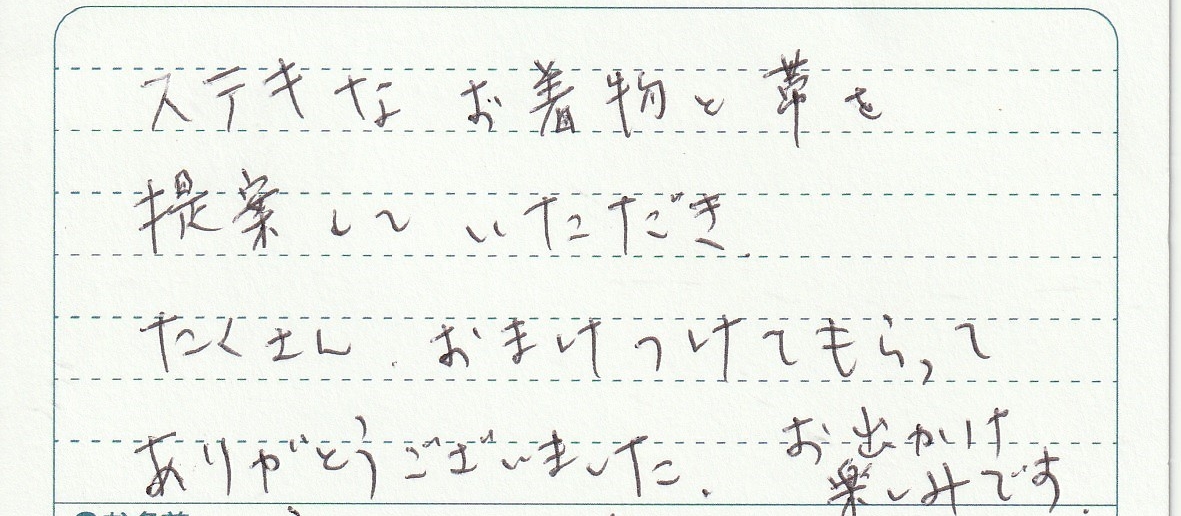 ステキなお着物と帯を
提案していただき、
たくさん、おまけつけてもらって
ありがとうございました。
お出かけ
楽しみです。